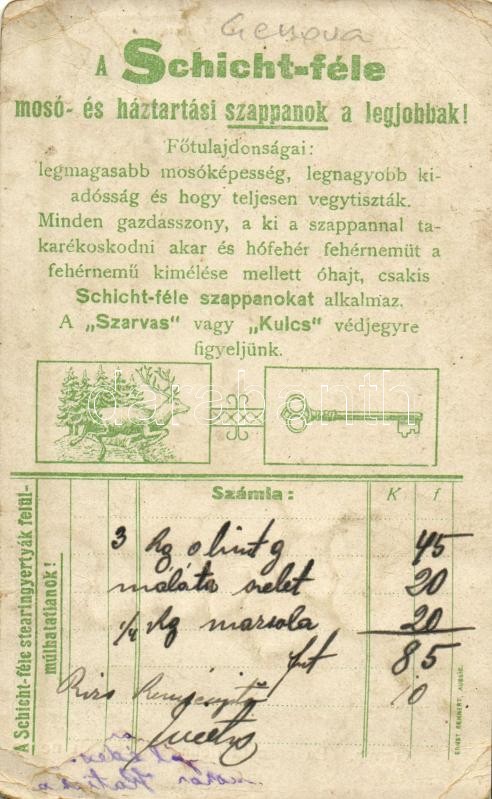 Genova
A Schicht-féle
mosó- és háztartási szappanok a legjobbak!
Főtulajdonságai:
legmagasabb mosóképesség, legnagyobb ki-
adósság és hogy teljesen vegytiszták.
Minden gazdasszony, a ki a szappannal ta-
karékoskodni akar és hófehér fehérneműt a
fehérnemű kimélése mellett óhajt, csakis
Schicht-féle szappanokat alkalmaz.
A „Szarvas" vagy „Kulcs" védjegyre
figyeljünk.
darabanth
A Schicht-féle stearingyertyák felül-
múlhatatlanok!
Számla: K f
3 kg 45
20
1/4 kg 20
85
10
ERNST REHNERT, AUSSIG.